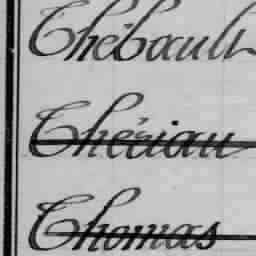 Thébault
Thériau
Thomas